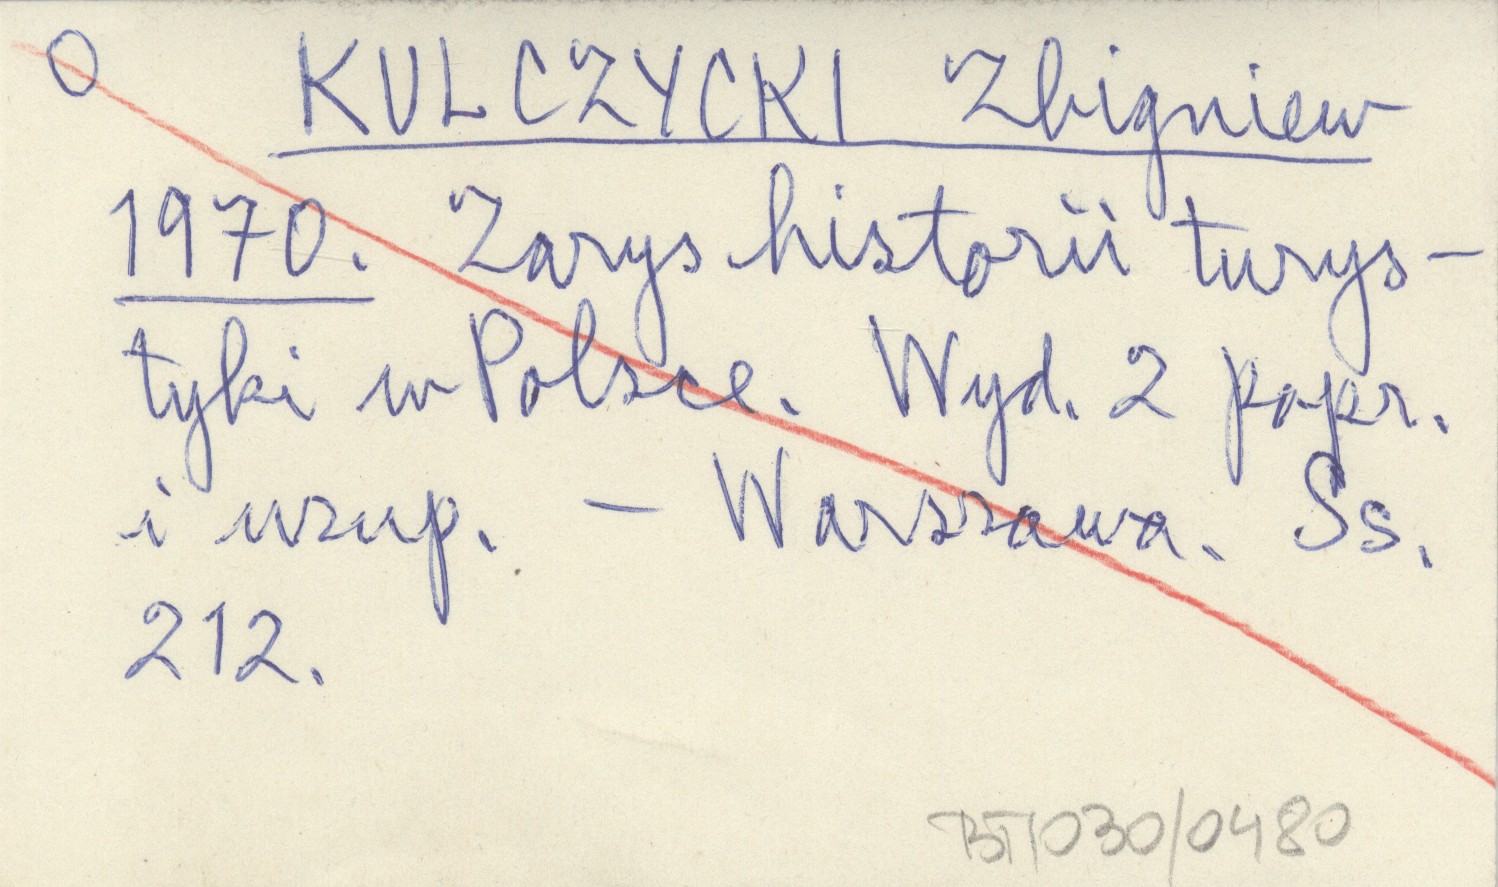 O KULCZYCKI Zbigniew
1970. Zarys historii turys-
tyki w Polsce. Wyd. 2 popr.
i uzup. – Warszawa. Ss.
212.
BT/030/0480